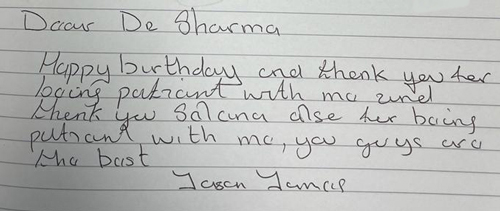 Dear Dr Sharma
Happy birthday and thank you for
being patient with me and
thank you Salena also for being
patient with me, you guys are
the best
Jason James